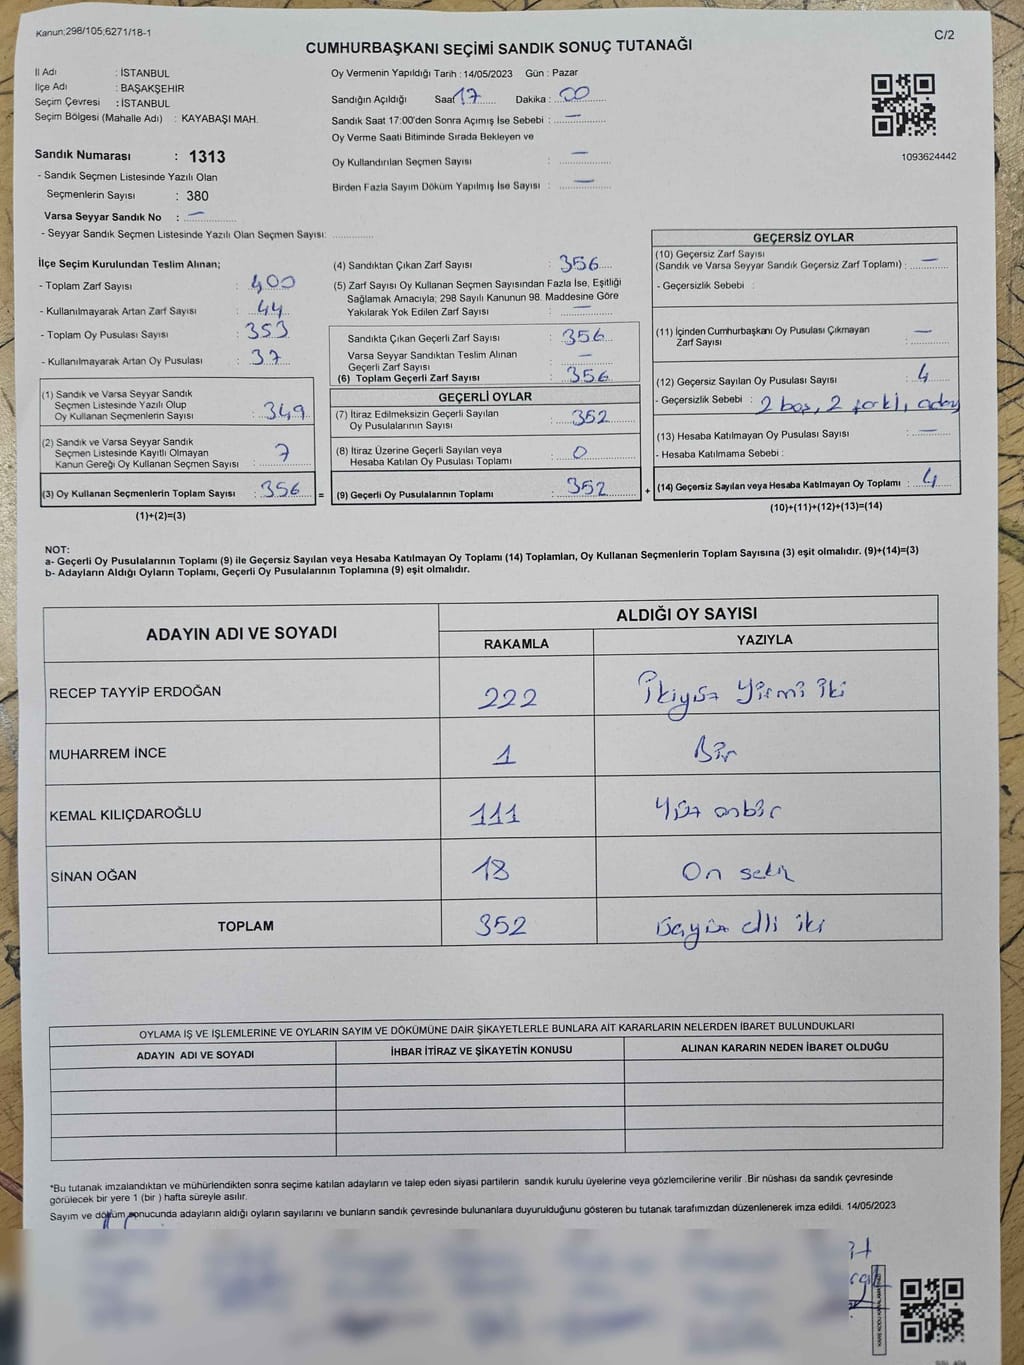 Kanun;298/105;6271/18-1
C/2
CUMHURBAŞKANI SEÇİMİ SANDIK SONUÇ TUTANAĞI
İl Adı : İSTANBUL
İlçe Adı : BAŞAKŞEHİR
Seçim Çevresi : İSTANBUL
Seçim Bölgesi (Mahalle Adı) : KAYABAŞI MAH.
Sandık Numarası : 1313
- Sandık Seçmen Listesinde Yazılı Olan
Seçmenlerin Sayısı : 380
Varsa Seyyar Sandık No : —
- Seyyar Sandık Seçmen Listesinde Yazılı Olan Seçmen Sayısı:
Oy Vermenin Yapıldığı Tarih : 14/05/2023 Gün : Pazar
Sandığın Açıldığı Saat 17 Dakika : 00
Sandık Saat 17:00'den Sonra Açımış İse Sebebi : —
Oy Verme Saati Bitiminde Sırada Bekleyen ve
Oy Kullandırılan Seçmen Sayısı : —
Birden Fazla Sayım Döküm Yapılmış İse Sayısı : —
1093624442
İlçe Seçim Kurulundan Teslim Alınan;
- Toplam Zarf Sayısı : 400
- Kullanılmayarak Artan Zarf Sayısı : 44
- Toplam Oy Pusulası Sayısı : 353
- Kullanılmayarak Artan Oy Pusulası : 37
(1) Sandık ve Varsa Seyyar Sandık
Seçmen Listesinde Yazılı Olup
Oy Kullanan Seçmenlerin Sayısı : 349
(2) Sandık ve Varsa Seyyar Sandık
Seçmen Listesinde Kayıtlı Olmayan
Kanun Gereği Oy Kullanan Seçmen Sayısı : 7
(3) Oy Kullanan Seçmenlerin Toplam Sayısı : 356 =
(1)+(2)=(3)
(4) Sandıktan Çıkan Zarf Sayısı : 356
(5) Zarf Sayısı Oy Kullanan Seçmen Sayısından Fazla İse, Eşitliği
Sağlamak Amacıyla; 298 Sayılı Kanunun 98. Maddesine Göre
Yakılarak Yok Edilen Zarf Sayısı : —
Sandıkta Çıkan Geçerli Zarf Sayısı : 356
Varsa Seyyar Sandıktan Teslim Alınan
Geçerli Zarf Sayısı : —
(6) Toplam Geçerli Zarf Sayısı : 356
GEÇERLİ OYLAR
(7) İtiraz Edilmeksizin Geçerli Sayılan
Oy Pusulalarının Sayısı : 352
(8) İtiraz Üzerine Geçerli Sayılan veya
Hesaba Katılan Oy Pusulası Toplamı : 0
(9) Geçerli Oy Pusulalarının Toplamı : 352 +
GEÇERSİZ OYLAR
(10) Geçersiz Zarf Sayısı
(Sandık ve Varsa Seyyar Sandık Geçersiz Zarf Toplamı) : —
- Geçersizlik Sebebi :
(11) İçinden Cumhurbaşkanı Oy Pusulası Çıkmayan
Zarf Sayısı : —
(12) Geçersiz Sayılan Oy Pusulası Sayısı : 4
- Geçersizlik Sebebi : 2 boş, 2 farklı, aday
(13) Hesaba Katılmayan Oy Pusulası Sayısı : —
- Hesaba Katılmama Sebebi :
(14) Geçersiz Sayılan veya Hesaba Katılmayan Oy Toplamı : 4
(10)+(11)+(12)+(13)=(14)
NOT:
a- Geçerli Oy Pusulalarının Toplamı (9) ile Geçersiz Sayılan veya Hesaba Katılmayan Oy Toplamı (14) Toplamları, Oy Kullanan Seçmenlerin Toplam Sayısına (3) eşit olmalıdır. (9)+(14)=(3)
b- Adayların Aldığı Oyların Toplamı, Geçerli Oy Pusulalarının Toplamına (9) eşit olmalıdır.
ADAYIN ADI VE SOYADI
ALDIĞI OY SAYISI
RAKAMLA YAZIYLA
RECEP TAYYİP ERDOĞAN 222 İkiyüz Yirmi iki
MUHARREM İNCE 1 Bir
KEMAL KILIÇDAROĞLU 111 Yüz onbir
SİNAN OĞAN 18 On sekiz
TOPLAM 352 elli iki
OYLAMA İŞ VE İŞLEMLERİNE VE OYLARIN SAYIM VE DÖKÜMÜNE DAİR ŞİKAYETLERLE BUNLARA AİT KARARLARIN NELERDEN İBARET BULUNDUKLARI
ADAYIN ADI VE SOYADI İHBAR İTİRAZ VE ŞİKAYETİN KONUSU ALINAN KARARIN NEDEN İBARET OLDUĞU
*Bu tutanak imzalandıktan ve mühürlendikten sonra seçime katılan adayların ve talep eden siyasi partilerin sandık kurulu üyelerine veya gözlemcilerine verilir .Bir nüshası da sandık çevresinde
görülecek bir yere 1 (bir ) hafta süreyle asılır.
Sayım ve döküm sonucunda adayların aldığı oyların sayılarını ve bunların sandık çevresinde bulunanlara duyurulduğunu gösteren bu tutanak tarafımızdan düzenlenerek imza edildi. 14/05/2023